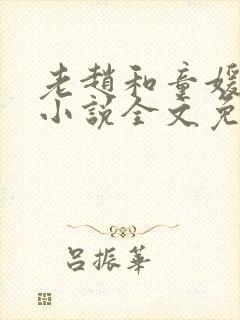 老赵和童媛
小說全文免
吕振華